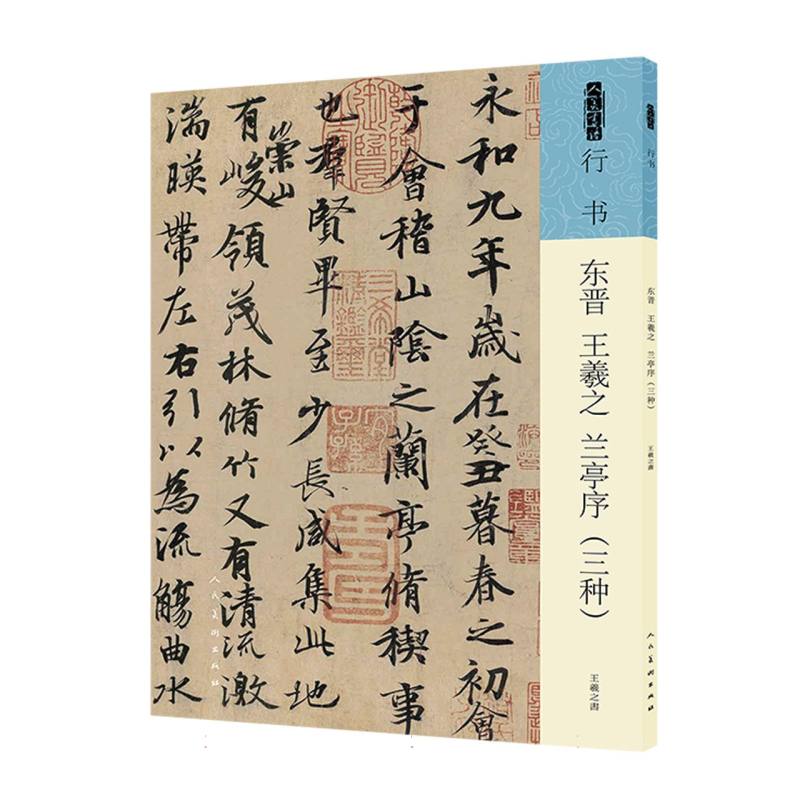 行书
东晋 王羲之 兰亭序（三种）
王羲之書
行书
东晋 王羲之 兰亭序（三种）
王羲之書
人民美術出版社
永和九年歲在癸丑暮春之初會
于會稽山陰之蘭亭脩稧事
也羣賢畢至少長咸集此地
有崇山峻領茂林脩竹又有清流激
湍暎帶左右引以為流觴曲水
人民美術出版社